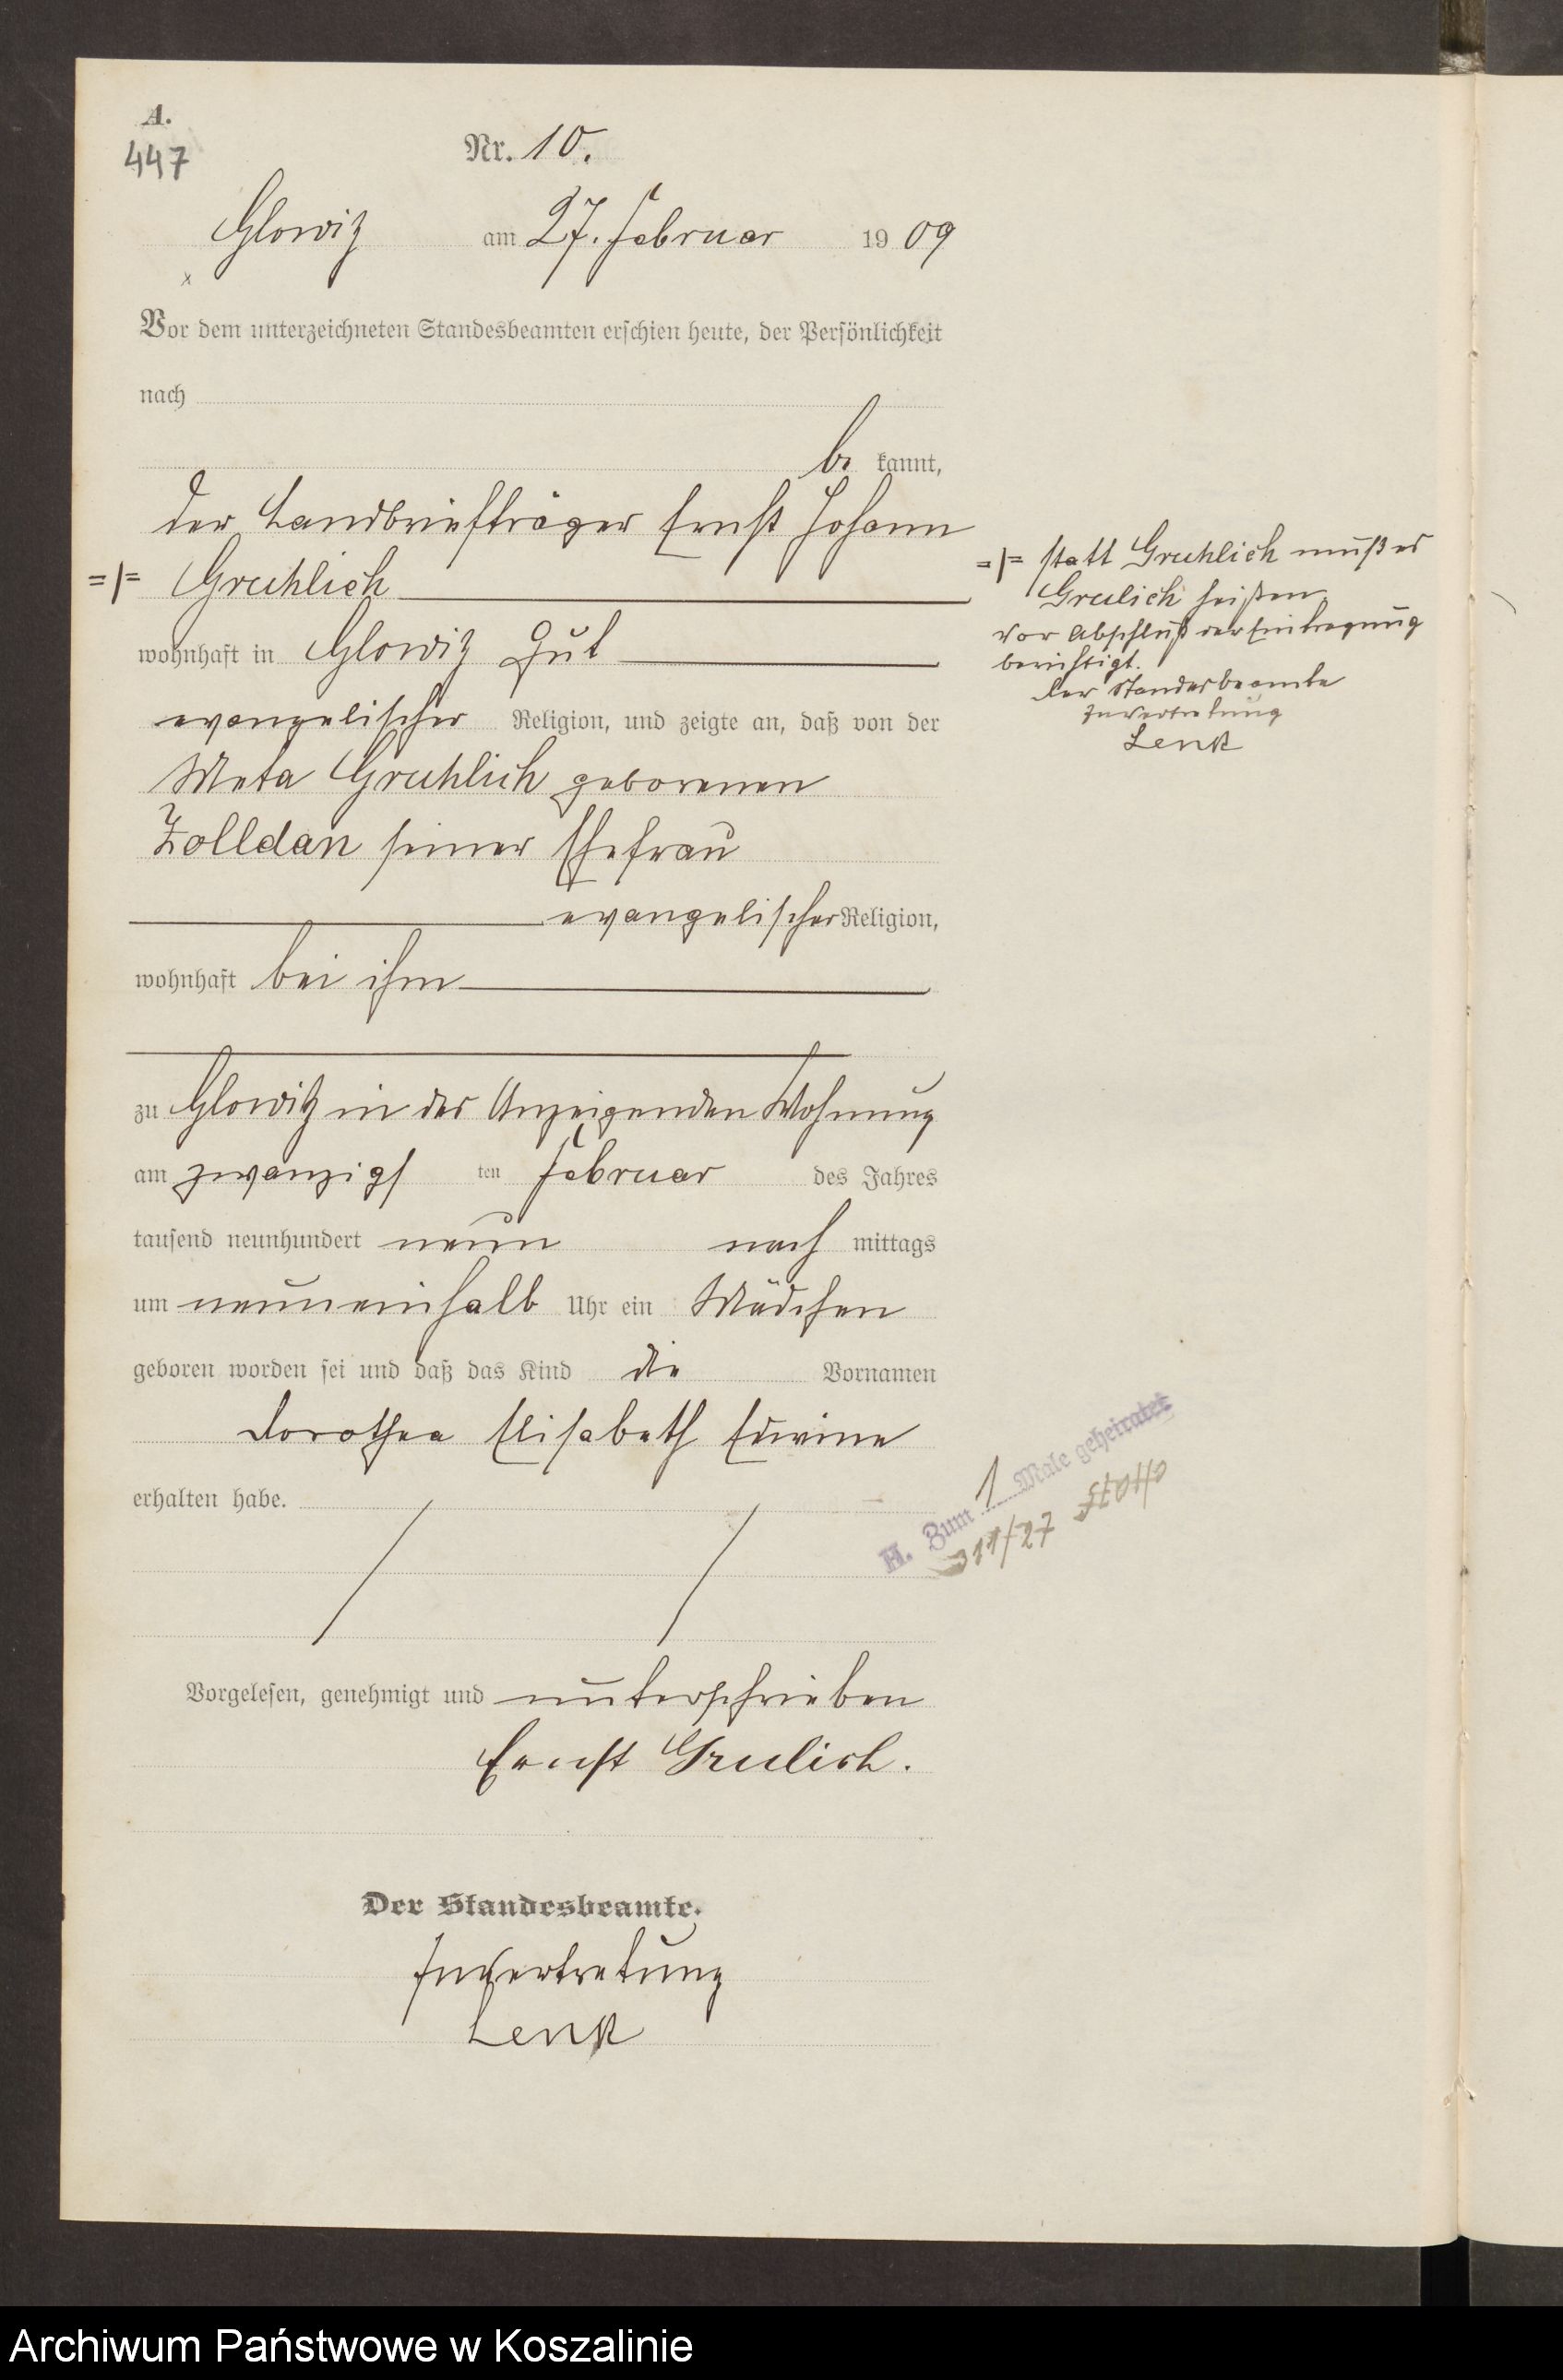 A.
447
Nr. 10.
Glowitz am 27. Februar 1909
Vor dem unterzeichneten Standesbeamten erschien heute, der Persönlichkeit
nach
be kannt,
der Landbriefträger Ernst Johann
=/= Gruhlich
wohnhaft in Glowitz Gut
evangelischer Religion, und zeigte an, daß von der
Meta Gruhlich geborenen
Zolldan seiner Ehefrau
evangelischer Religion,
wohnhaft bei ihm
zu Glowitz in des Anzeigenden Wohnung
am zwanzigs ten Februar des Jahres
tausend neunhundert neun nach mittags
um neuneinhalb Uhr ein Mädchen
geboren worden sei und daß das Kind die Vornamen
Dorothea Elisabeth Edwine
erhalten habe.
Vorgelesen, genehmigt und unterschrieben
Ernst Grulich.
Der Standesbeamte.
In Vertretung
Lenk
=/= statt Gruhlich muß es
Grulich heißen.
Vor Abschluß der Eintragung
berichtigt.
Der Standesbeamte
In Vertretung
Lenk
H. Zum 1 Male geheiratet
311/27
Archiwum Państwowe w Koszalinie